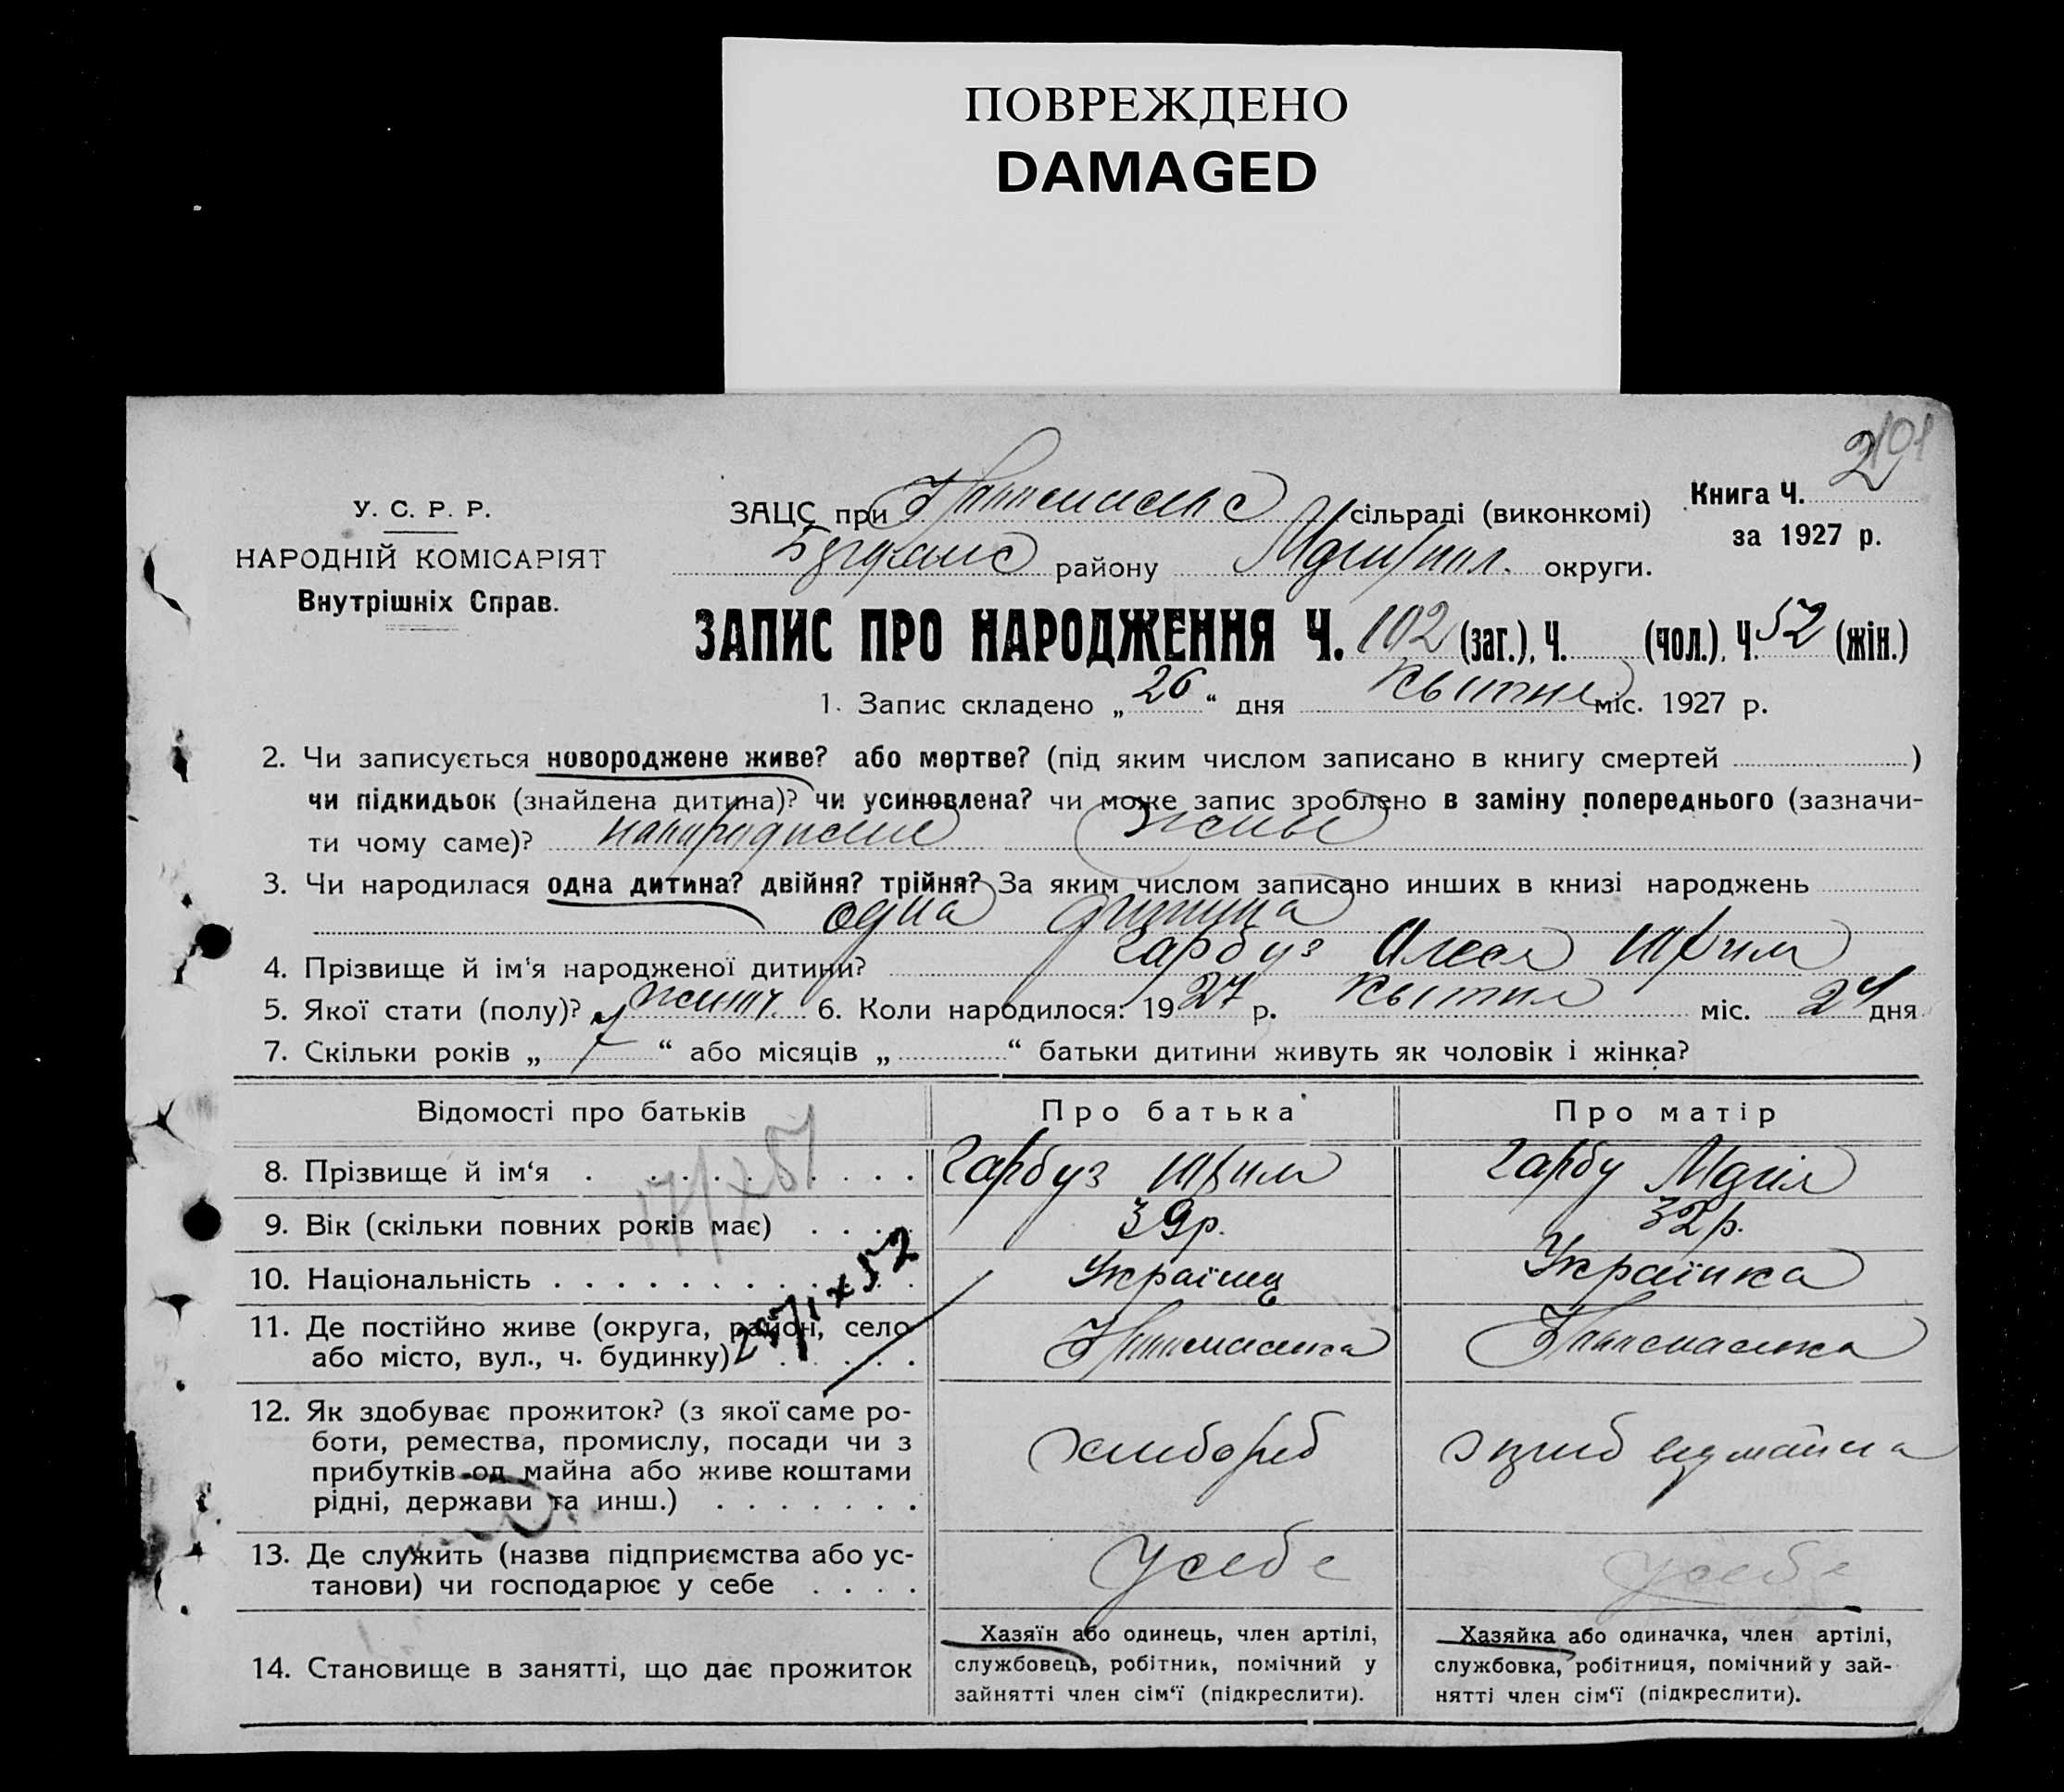 ПОВРЕЖДЕНО
DAMAGED
101
У. С. Р. Р.
НАРОДНІЙ КОМІСАРІЯТ
Внутрішніх Справ.
Книга Ч. 2
за 1927 р.
ЗАЦС при сільраді (виконкомі)
району округи.
ЗАПИС ПРО НАРОДЖЕННЯ Ч. 102 (заг.), Ч. (чол.), Ч. 52 (жін.)
1. Запис складено „ 26 “ дня Квітня міс. 1927 р.
2. Чи записується новороджене живе? або мертве? (під яким числом записано в книгу смертей )
чи підкидьок (знайдена дитина)? чи усиновлена? чи може запис зроблено в заміну попереднього (зазначи-
ти чому саме)? живе
3. Чи народилася одна дитина? двійня? трійня? За яким числом записано инших в книзі народжень
одна дитина
4. Прізвище й ім'я народженої дитини? Гарбуз
5. Якої стати (полу)? 6. Коли народилося: 1927 р. Квітня міс. 24 дня
7. Скільки років „ “ або місяців „ “ батьки дитини живуть як чоловік і жінка?
Відомості про батьків Про батька Про матір
8. Прізвище й ім‘я Гарбуз Гарбу Марія
9. Вік (скільки повних років має) 39р. 32р.
10. Національність Українец Українка
11. Де постійно живе (округа, район, село
або місто, вул., ч. будинку)
12. Як здобуває прожиток? (з якої саме ро-
боти, ремества, промислу, посади чи з
прибутків од майна або живе коштами
рідні, держави та инш.) хлибороб
13. Де служить (назва підприємства або ус-
танови) чи господарює у себе у себе у себе
14. Становище в занятті, що дає прожиток
Хазяїн або одинець, член артілі,
службовець, робітник, помічний у
зайнятті член сім‘ї (підкреслити).
Хазяйка або одиначка, член артілі,
службовка, робітниця, помічний у зай-
нятті член сім‘ї (підкреслити).